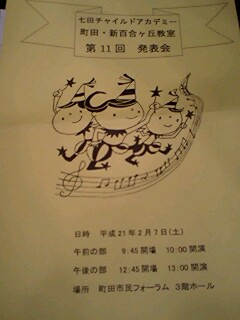 七田チャイルドアカデミー
町田・新百合ヶ丘教室
第11回 発表会
日時 平成21年2月7日(土)
午前の部 9:45開場 10:00開演
午後の部 12:45開場 13:00開演
場所 町田市民フォーラム 3階ホール